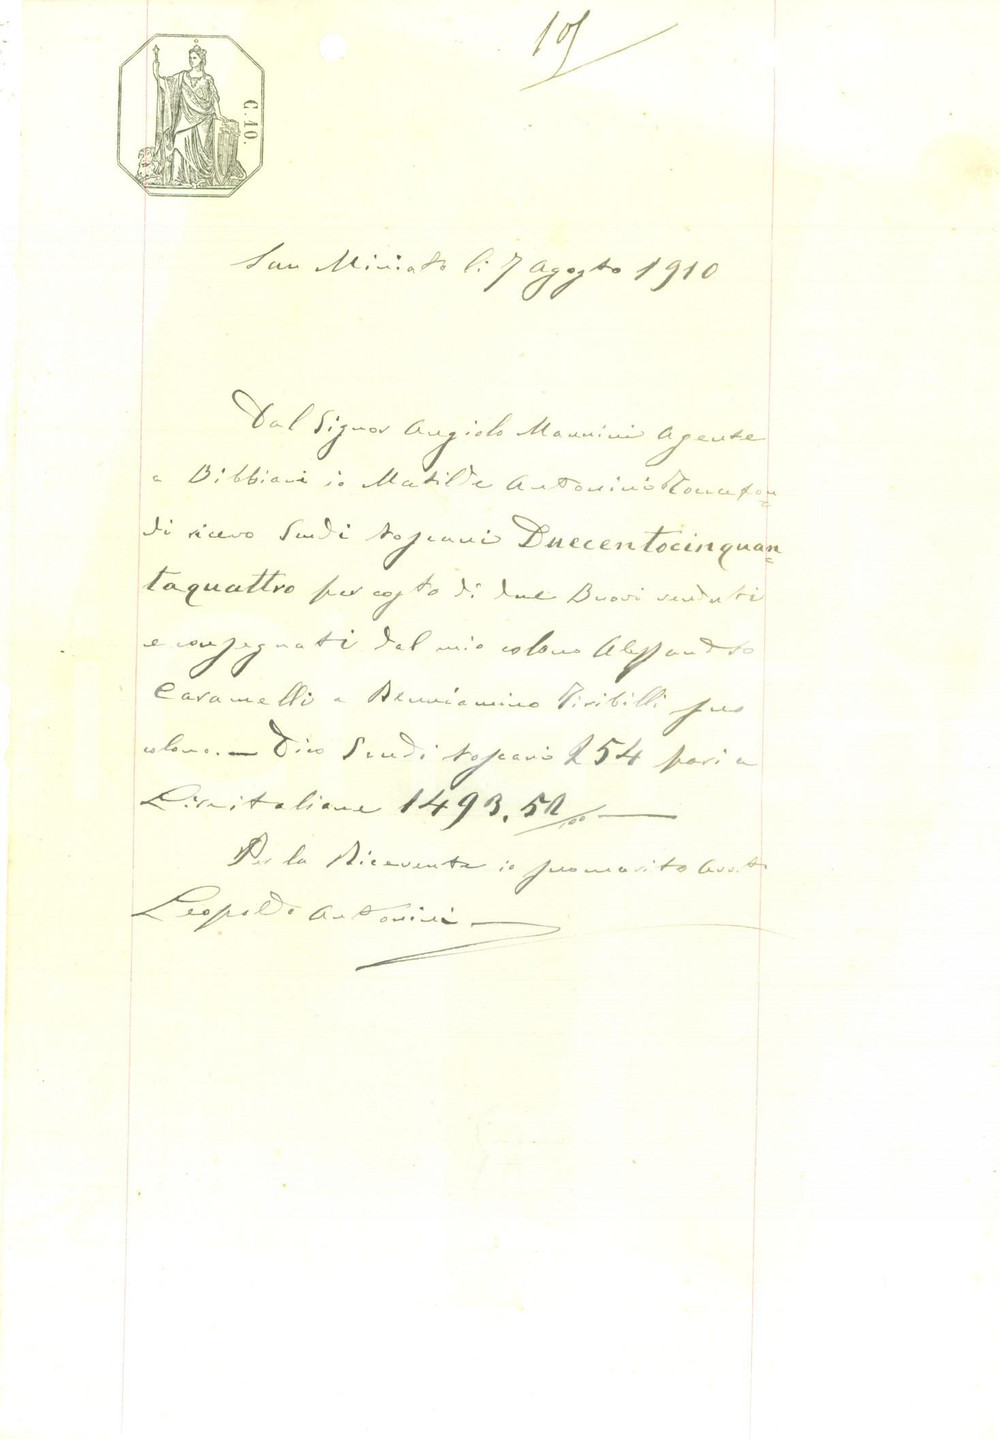 105
C. 10.
San Miniato li 7 agosto 1910
Dal Signor Angiolo Mannini Agente
a Bibbiani io Matilde Antonini Roncafon=
di ricevo Scudi toscani Duecentocinquan=
taquattro per costo di due Buovi venduti
e consegnati dal mio colono Alessandro
Caramelli a Benniamino Tiribilli suo
colono. — Dico Scudi toscani 254 pari a
Lire italiane 1493. 52/00 —
Per la Ricevente io suo marito Avv.to
Leopoldo Antonini